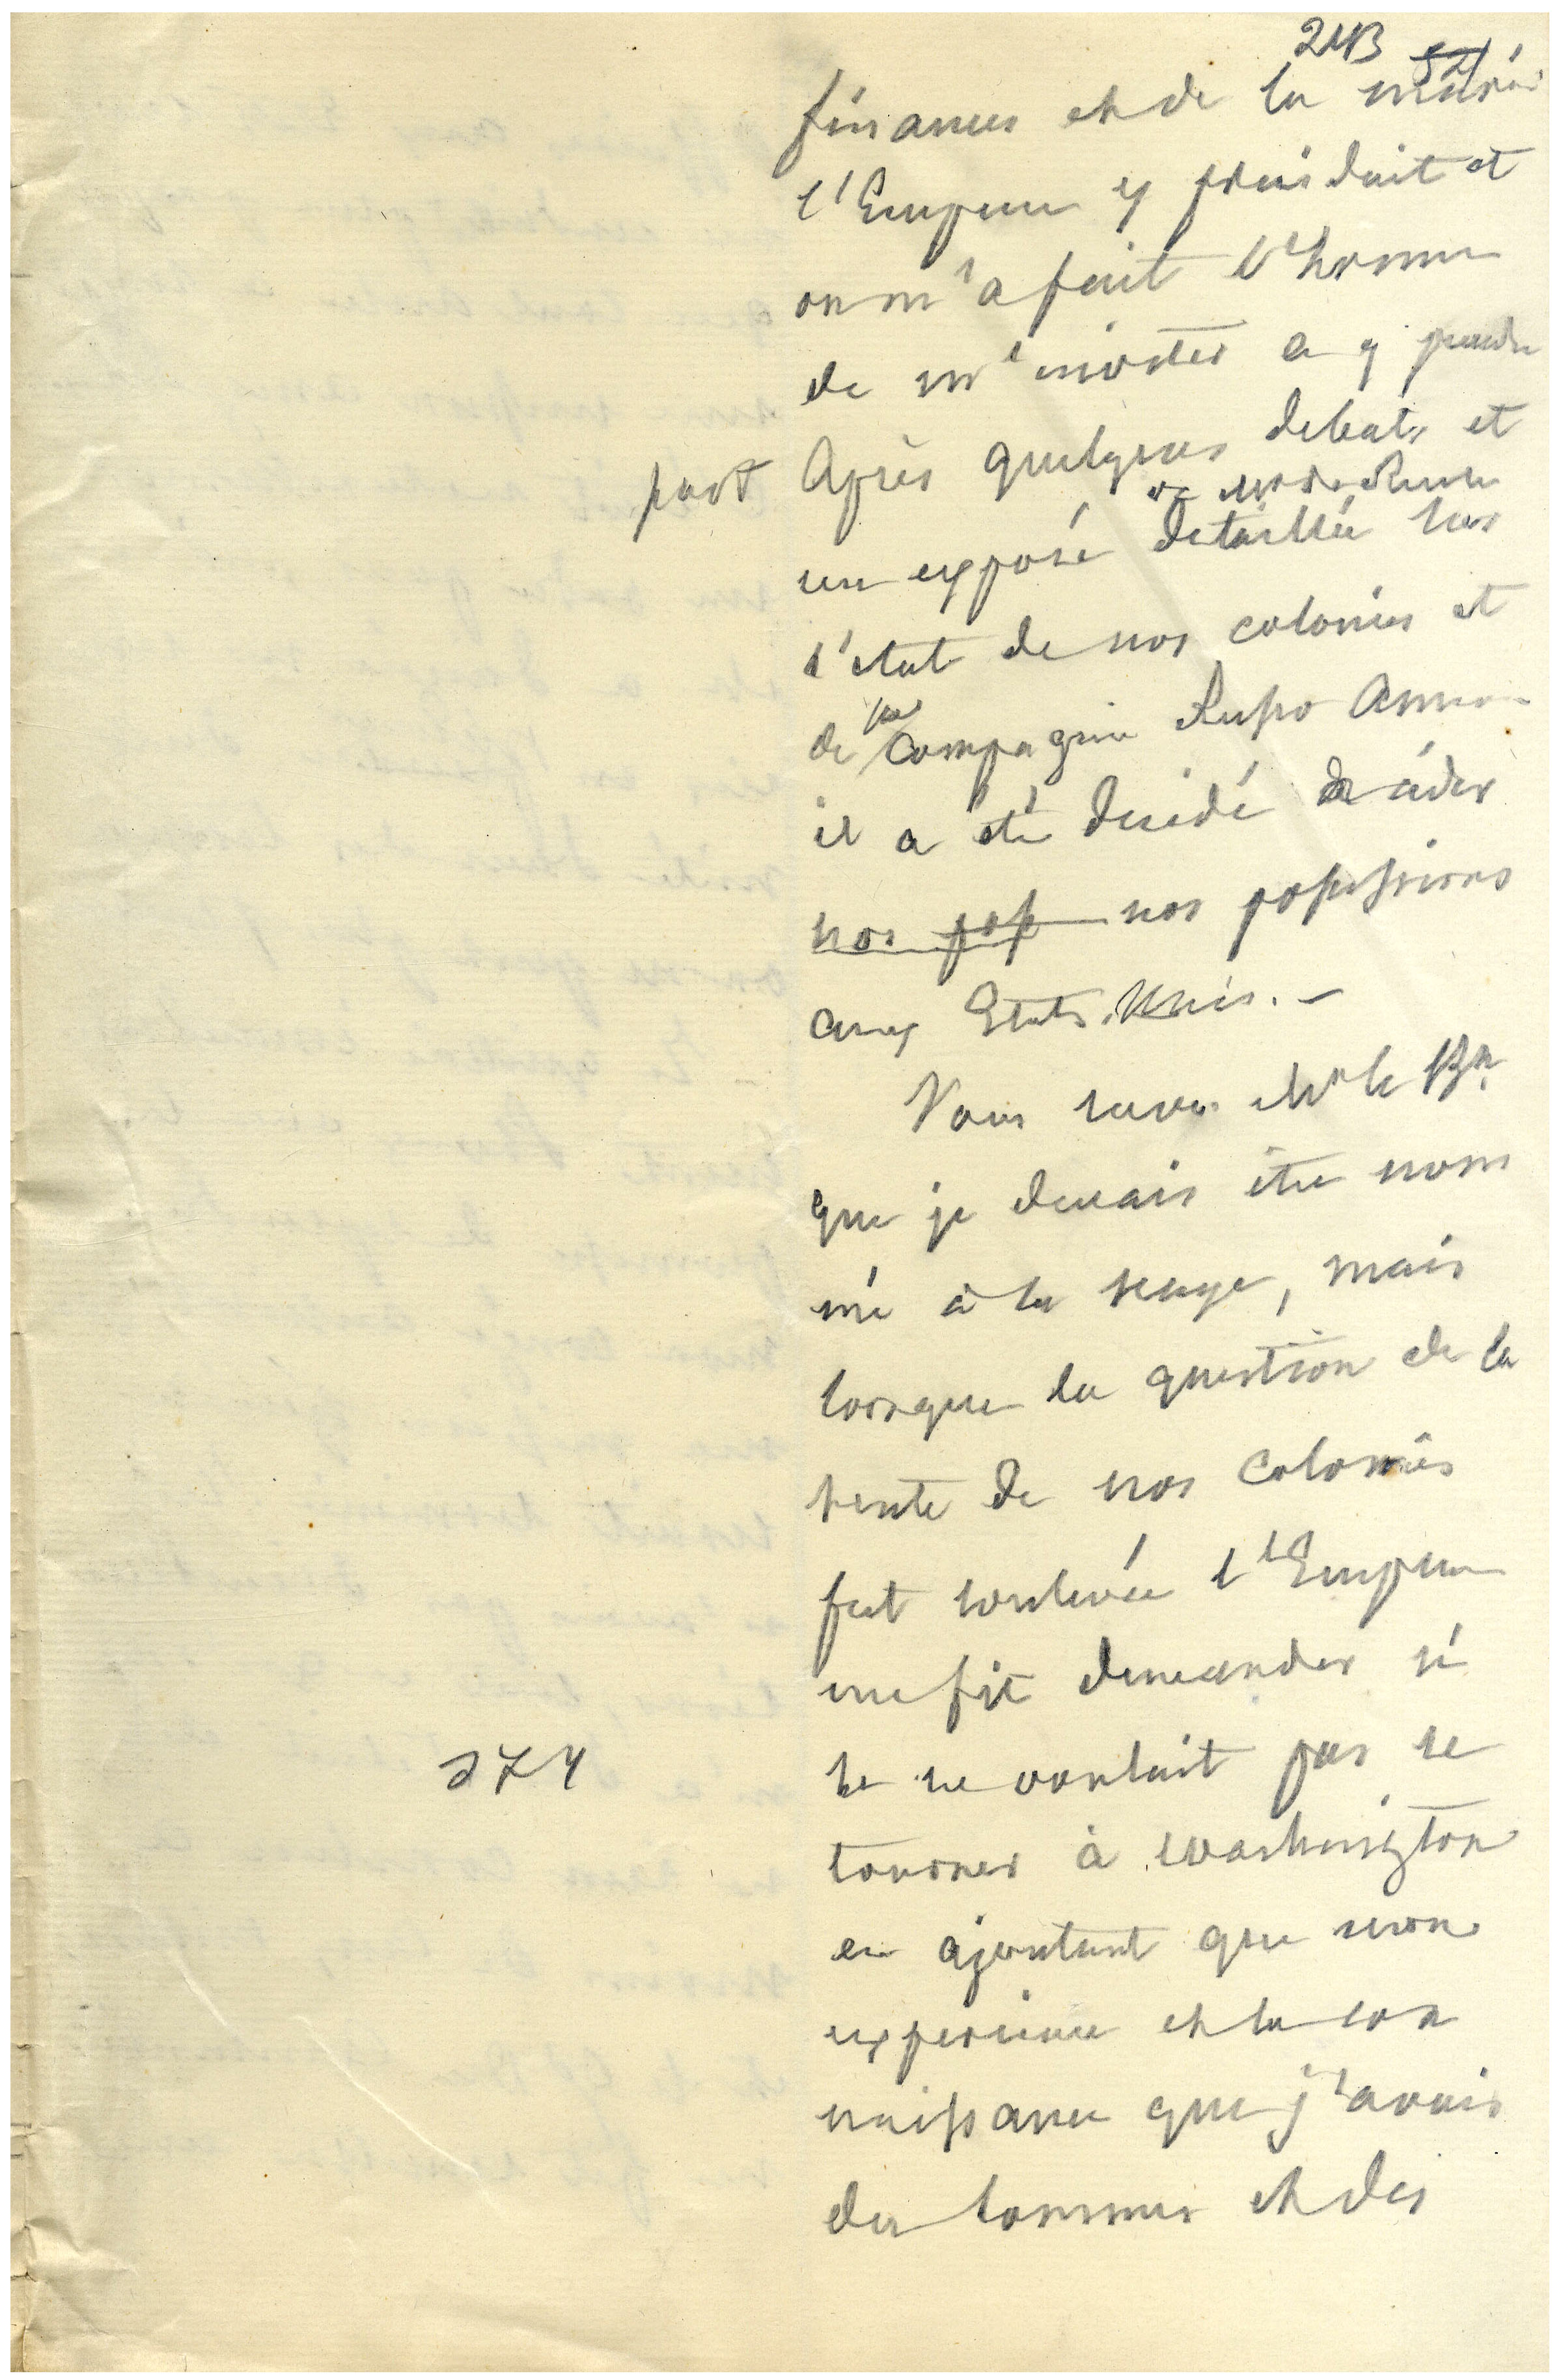 243
finances et de la marine
l'Empereur y présidait et
on m'a fait l'honneur
de m'inviter a y prendre
part Après quelques debats et
de Mr de Reutern
un exposé détaillée sur
l'etat de nos colonies et
de la Compagnie Russo Amer
il a été decidé de céder
nos poss nos possessions
aux Etats.Unis. –
Vous savez Mr le Bn
que je devais être nom
mé à la Haye, mais
lorsque la question de la
vente de nos colonies
fut soulevée l'Empereur
me fit demander si
je ne voulait pas re
tourner à Washington
en ajoutant que mon
experience et la con
naissance que j'avais
des hommes et des
274